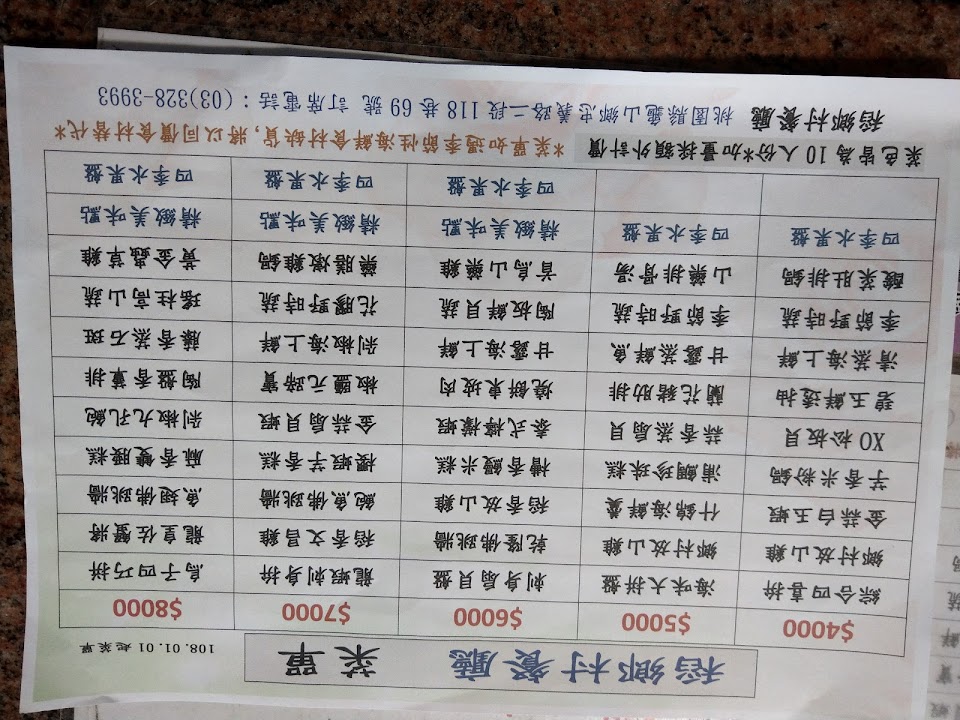 稻鄉村餐廳 菜單
108.01.01 起菜單
$4000 $5000 $6000 $7000 $8000
綜合四喜拚 海味大拼盤 刺身扇貝盤 龍蝦刺身拚 烏子四巧拼
鄉村放山雞 鄉村放山雞 乾隆佛跳牆 稻香文昌雞 龍皇佐蟹將
金蒜白玉蝦 什錦海鮮羹 稻香放山雞 鮑魚佛跳牆 魚翅佛跳牆
芋香米粉鍋 浦鯛珍珠糕 槽香鰻米糕 櫻蝦芋香糕 麻香雙腰糕
XO 松板貝 蒜香蒸扇貝 泰式檸檬蝦 金蒜扇貝蝦 剁椒九孔鮑
碧玉鮮透抽 蘭花豬肋排 燒餅東坡肉 椒鹽元蹄寶 陶盤香草排
清蒸海上鮮 甘露蒸鮮魚 甘露海上鮮 剁椒海上鮮 藤香蒸石斑
季節野時蔬 季節野時蔬 陶板鮮貝蔬 花膠野時蔬 瑤柱高山蔬
酸菜肚排鍋 山藥排骨湯 首烏山藥雞 藥膳燉雞鍋 黃金蟲草雞
四季水果盤 四季水果盤 精緻美味點 精緻美味點 精緻美味點
四季水果盤 四季水果盤 四季水果盤
菜色皆為 10 人份*加量採額外計價 *菜單如遇季節性海鮮食材缺貨,將以同價食材替代*
稻鄉村餐廳 桃園縣龜山鄉忠義路二段 118 巷 69 號 訂席電話:(03)328-3993